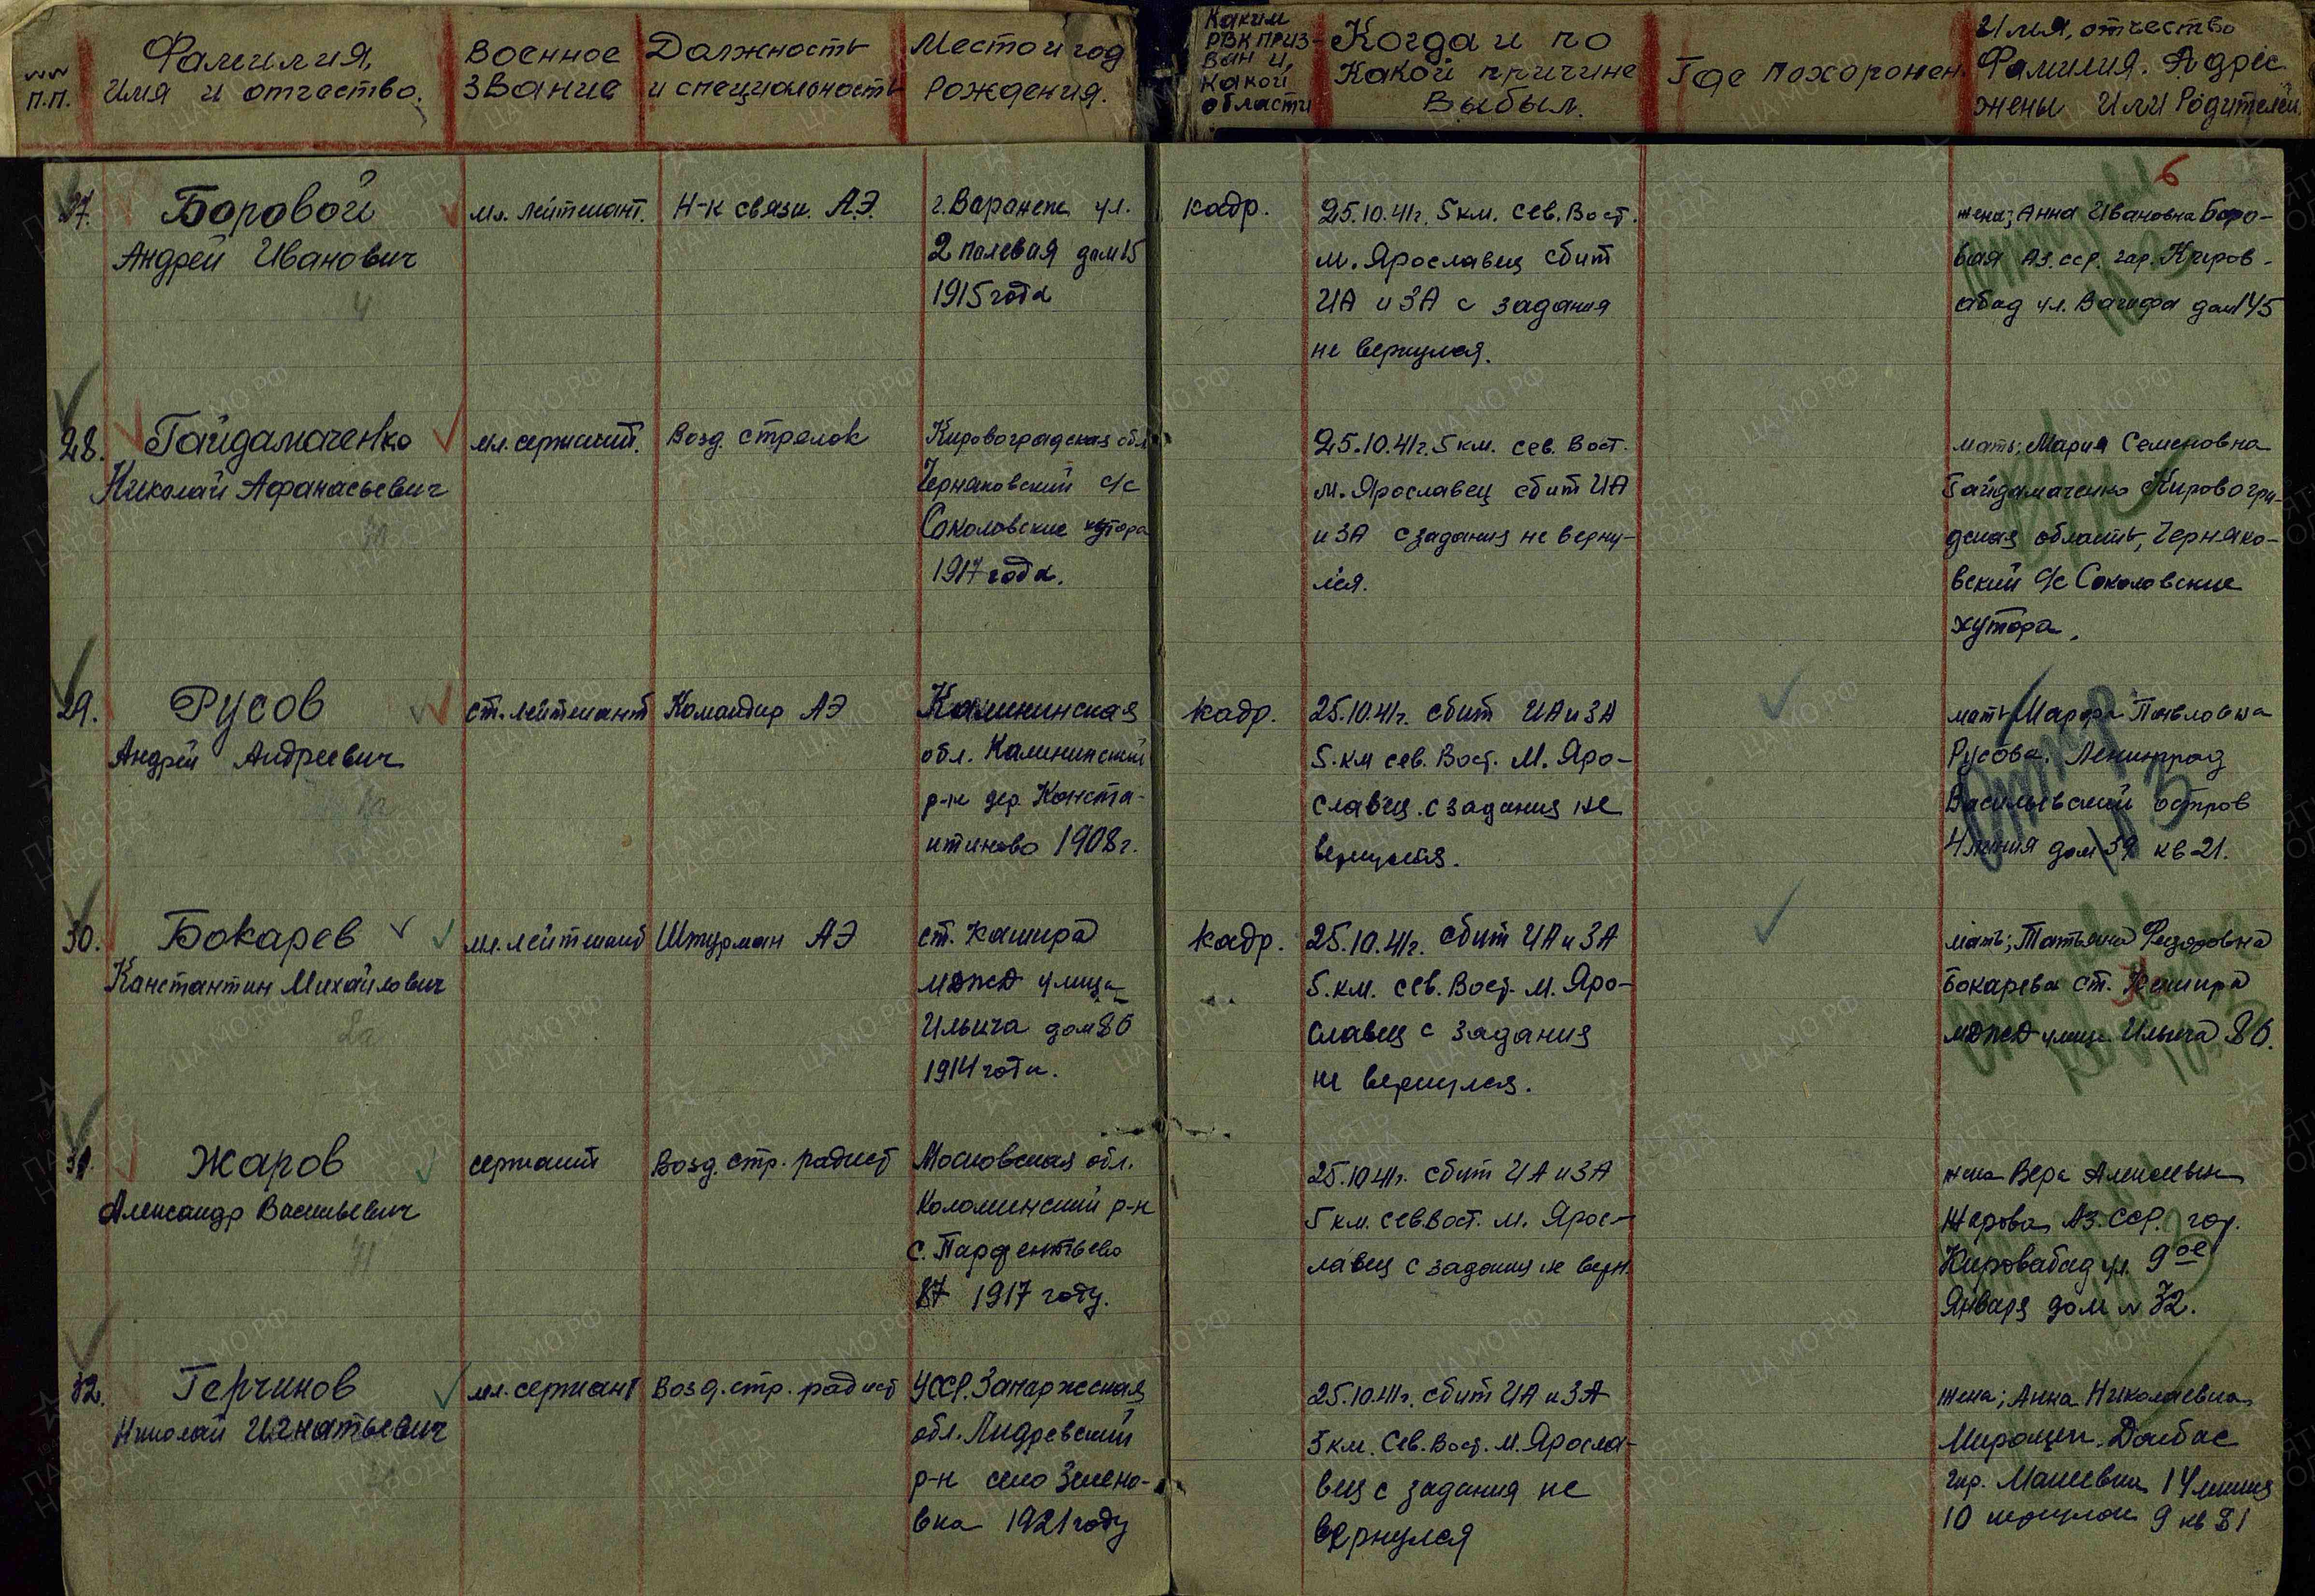 №№ п.п.
Фамилия,
Имя и отчество.
Военное
звание
Должность
и специальность
Место и год
рождения.
Каким
РВК приз-
ван и,
какой
области
Когда и по
какой причине
выбыл.
Где похоронен.
Имя, отчество
Фамилия. Адрес
жены или родителей
6
27.
Боровой
Андрей Иванович
мл. лейтенант.
Н-к связи АЭ.
г. Варонеж ул.
2 палевая дом 15
1915 года
кадр.
25.10.41г. 5 км. сев. Вост.
М. Ярославец сбит
ИА и ЗА с задания
не вернулся.
жена; Анна Ивановна Боро-
вая Аз. сср. гор. Киров-
абад ул. Вагифа дом 145
28.
Гайдамаченко
Николай Афанасьевич
мл. сержант.
Возд. стрелок
Кировоградская обл
Черняковский с/с
Соколовские хутора
1917 года.
25.10.41г. 5 км. сев. Вост.
М. Ярославец сбит ИА
и ЗА с задания не верну-
лся.
мать; Мария Семеновна
Гайдамаченко Кировогра-
дская область, Черняко-
вский с/с Соколовские
хутора.
29.
Русов
Андрей Андреевич
ст. лейтенант
Командир АЭ
Калининская
обл. Калининский
р-н дер. Конста-
нтиново 1908 г.
кадр.
25.10.41г. сбит ИА и ЗА
5. км сев. Вост. М. Яро-
славец. с задания не
вернулся.
мать Марфа Павловна
Русова. Ленинград
Васильевский остров
4 линия дом 39 кв 21.
30.
Бокарев
Канстантин Михайлович
мл. лейтенант
Штурман АЭ
ст. Кашира
МДжД улица
Ильича дом 86
1914 года.
кадр.
25.10.41г. сбит ИА и ЗА
5. км. сев. Вост. М. Яро-
славец с задания
не вернулся.
мать; Татьяна Федоровна
Бокарева ст. Кашира
МДжД улица Ильича 86.
31.
Жаров
Александр Васильевич
сержант
Возд. стр. радист
Московская обл.
Коломенский р-н
с. Парфентьево
87 1917 году.
25.10.41г. сбит ИА и ЗА
5 км. сев. Вост. М. Ярос-
лавец с задания не верн.
жена Вера Алексеевна
Жарова Аз. ССР. гор.
Кировабад ул. 9ое
Января дом № 32.
32.
Герчиков
Николай Игнатьевич
мл. сержант
Возд. стр. радист
УССР. Запаржская
обл. Андревский
р-н село Зелено-
вка 1921 году
25.10.41г. сбит ИА и ЗА
5 км. Сев. Вост. М. Яросла-
вец с задания не
вернулся
жена; Анна Николаевна
Донбас
гор. Макеевка 14 линия
10 9 кв 81